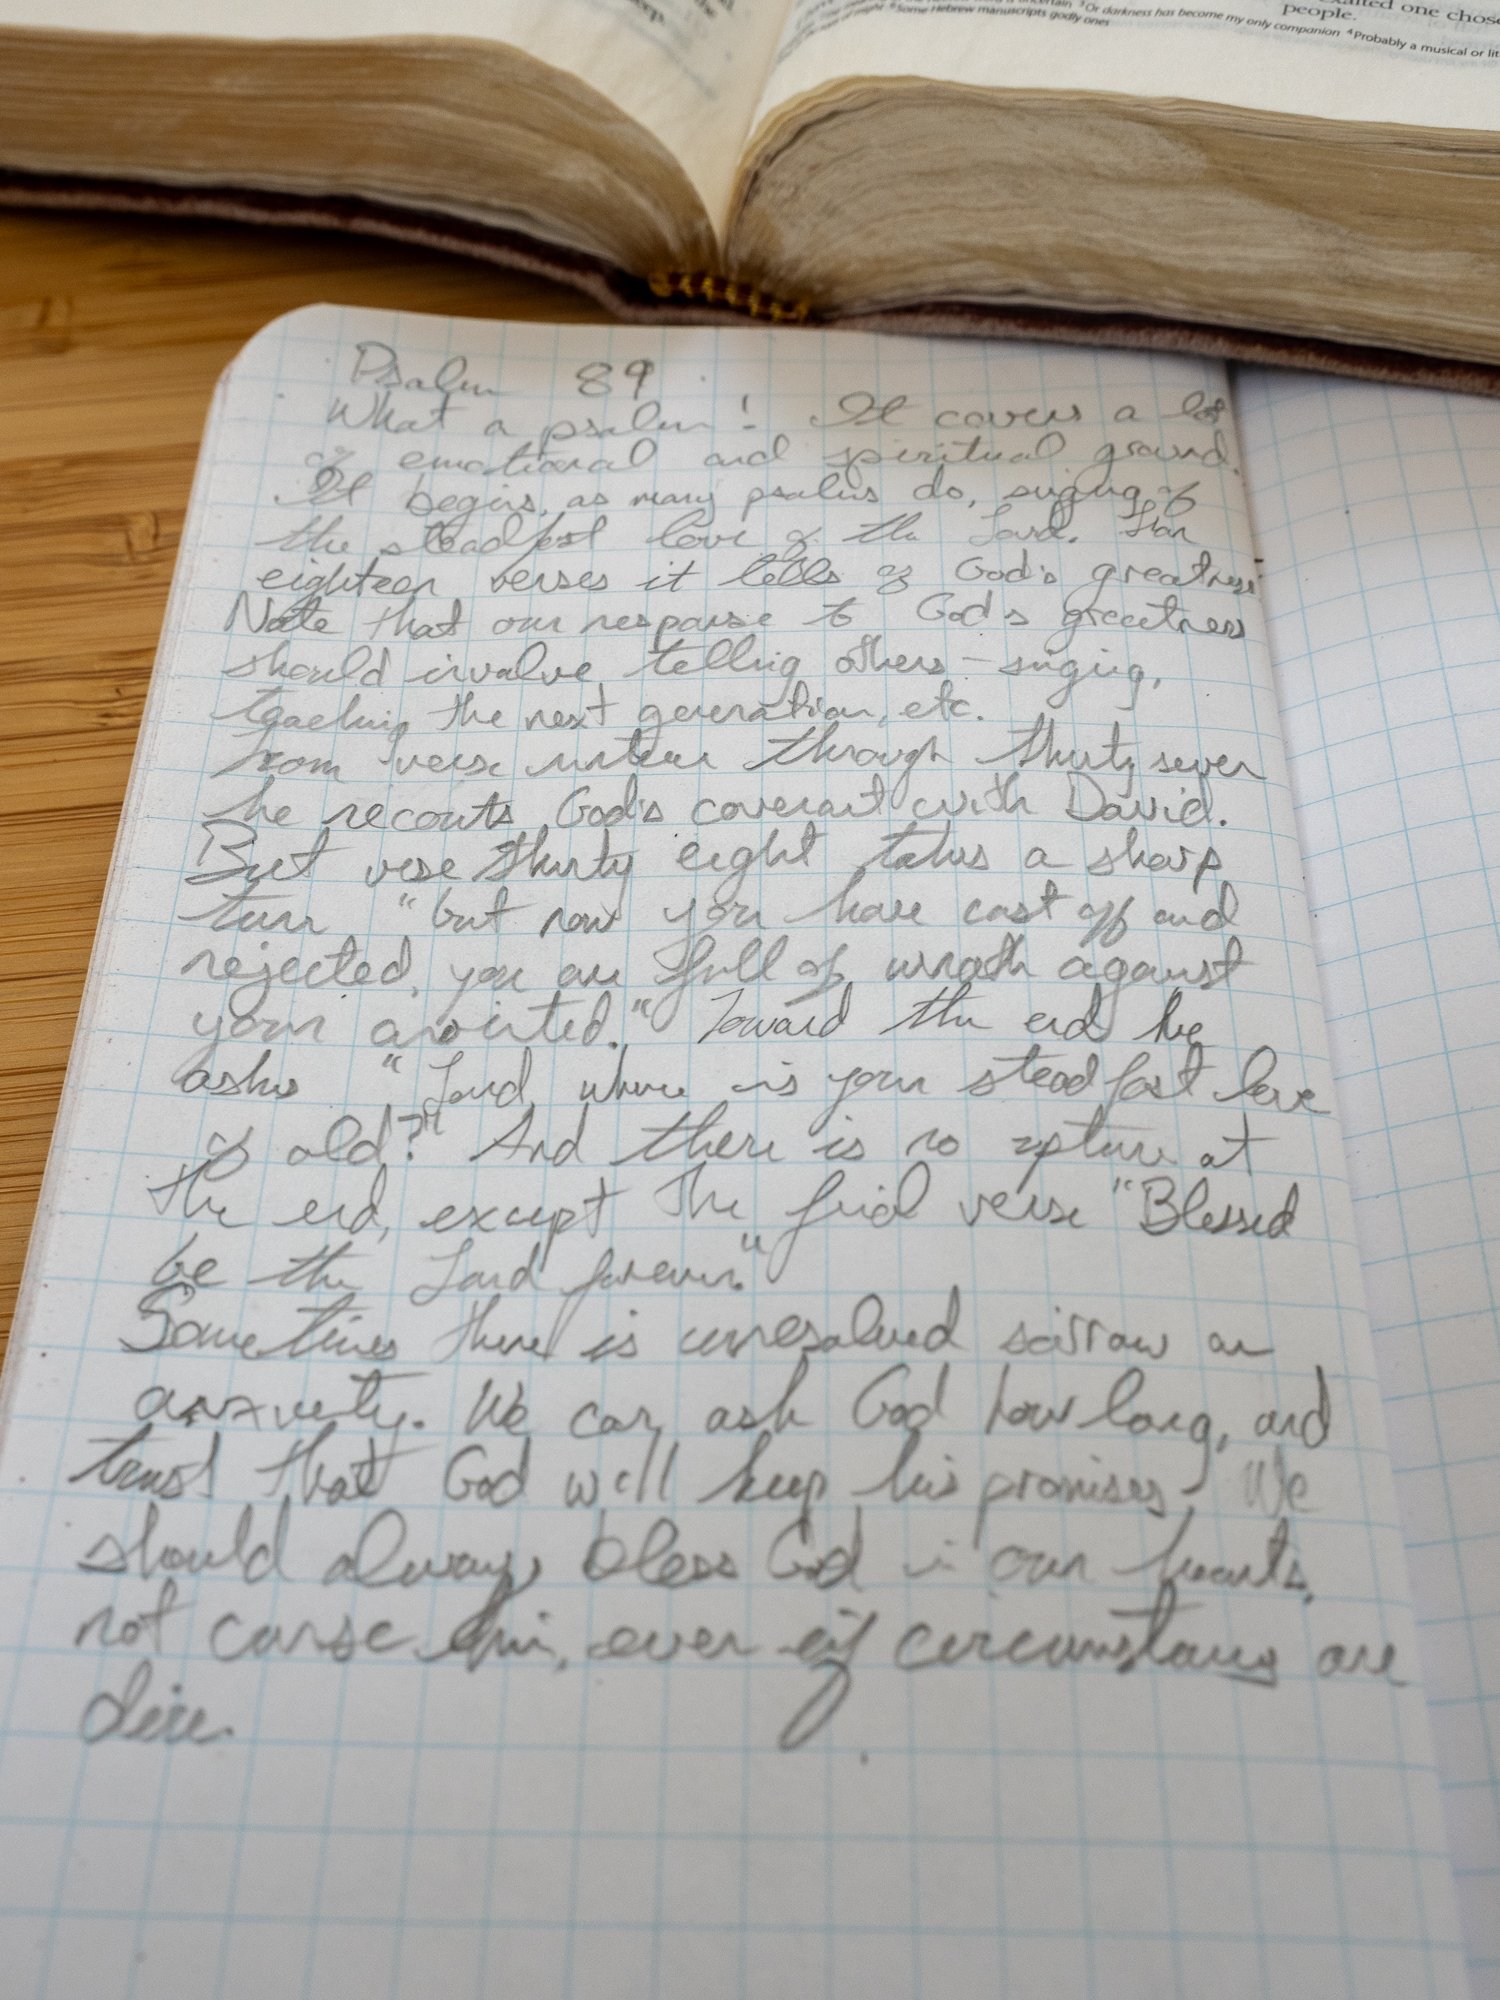 the
exalted one chose
people.
is uncertain ³Or darkness has become my only companion ⁴Probably a musical or lit
of might ⁶Some Hebrew manuscripts godly ones
Psalm 89
What a psalm! It covers a lot
of emotional and spiritual ground.
It begins, as many psalms do, singing of
the steadfast love of the Lord. For
eighteen verses it tells of God's greatness
Note that our response to God's greatness
should involve telling others - singing,
teaching the next generation, etc.
From verse ninteen through thirty seven
he recounts God's covenant with David.
But verse thirty eight takes a sharp
turn "but now you have cast off and
rejected, you are full of wrath against
your anointed." Toward the end he
asks "Lord, where is your steadfast love
of old?" And there is no upturn at
the end, except the final verse "Blessed
be the Lord forever."
Sometimes there is unresolved sorrow or
anxiety. We can ask God how long, and
trust that God will keep his promises. We
should always bless God in our hearts,
not curse him, even if circumstances are
dire.